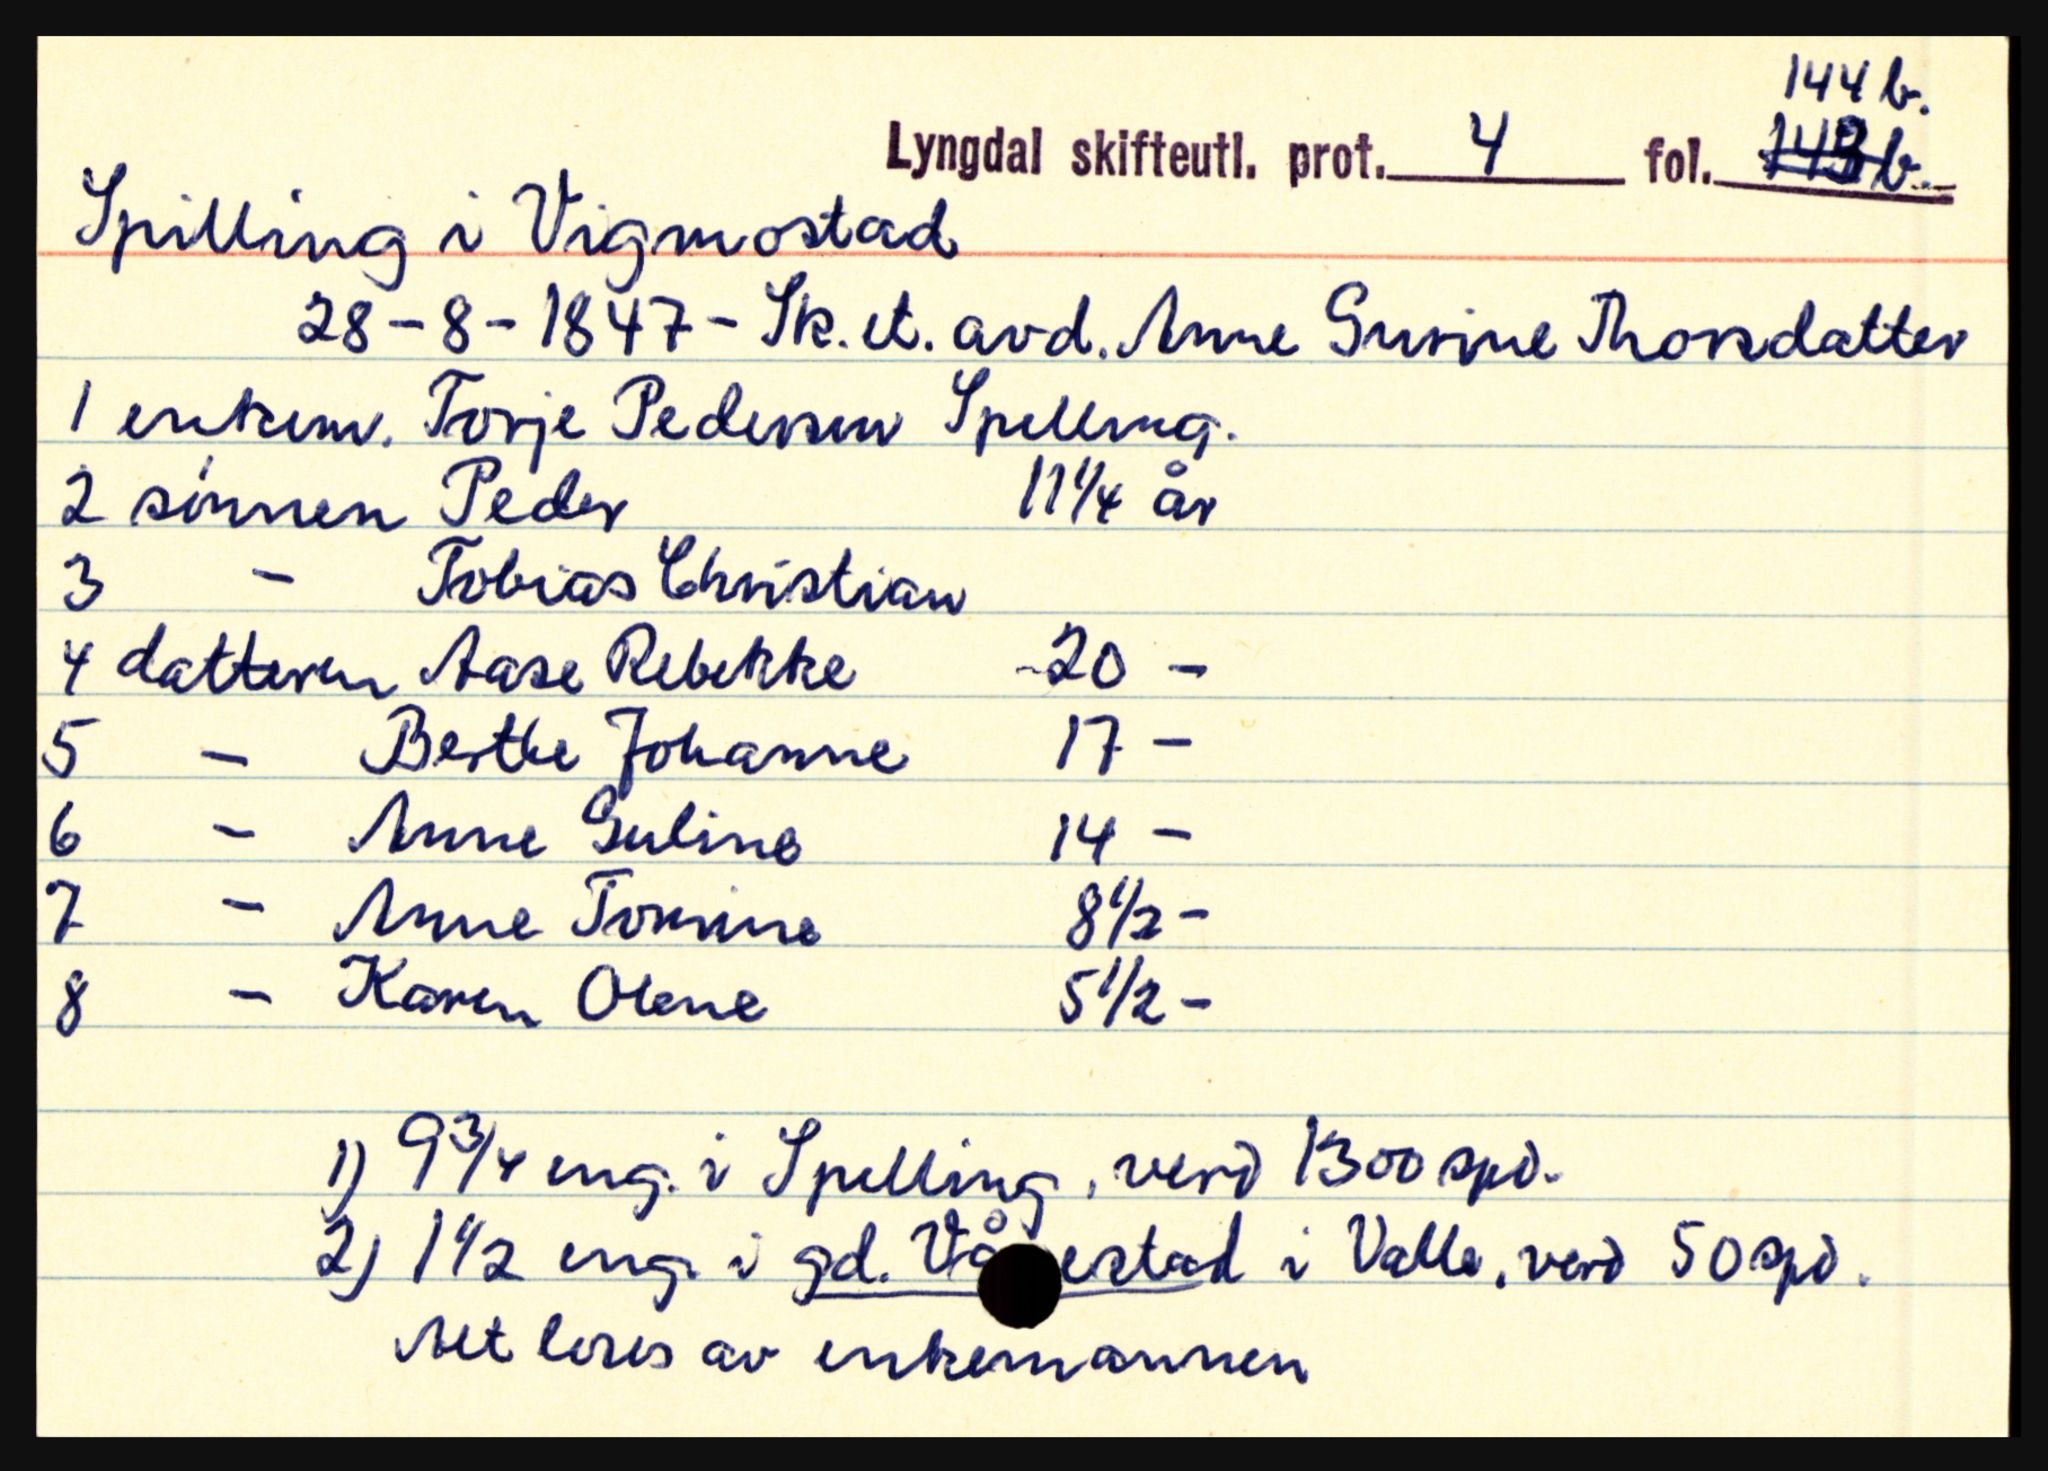 144 b.
Lyngdal skifteutl. prot. 4 fol. 143 b.
Spilling i Vigmostad
28-8-1847 - Sk. et. avd. Anne Gurine Thorsdatter
1 enkem. Torje Pedersen Spelling.
2 sønnen Peder 11 1/4 år
3 - Tobias Christian
4 datteren Aase Rebekke -20 -
5 - Berthe Johanne 17 -
6 - Anne Guline 14 -
7 - Anne Tomine 8 1/2 -
8 - Karen Olene 5 1/2 -
1) 9 3/4 eng. i Spelling, verd 1300 spd.
2) 1 1/2 eng. i gd. Vå estad i Valle, verd 50 spd.
Alt loses av enkemannen